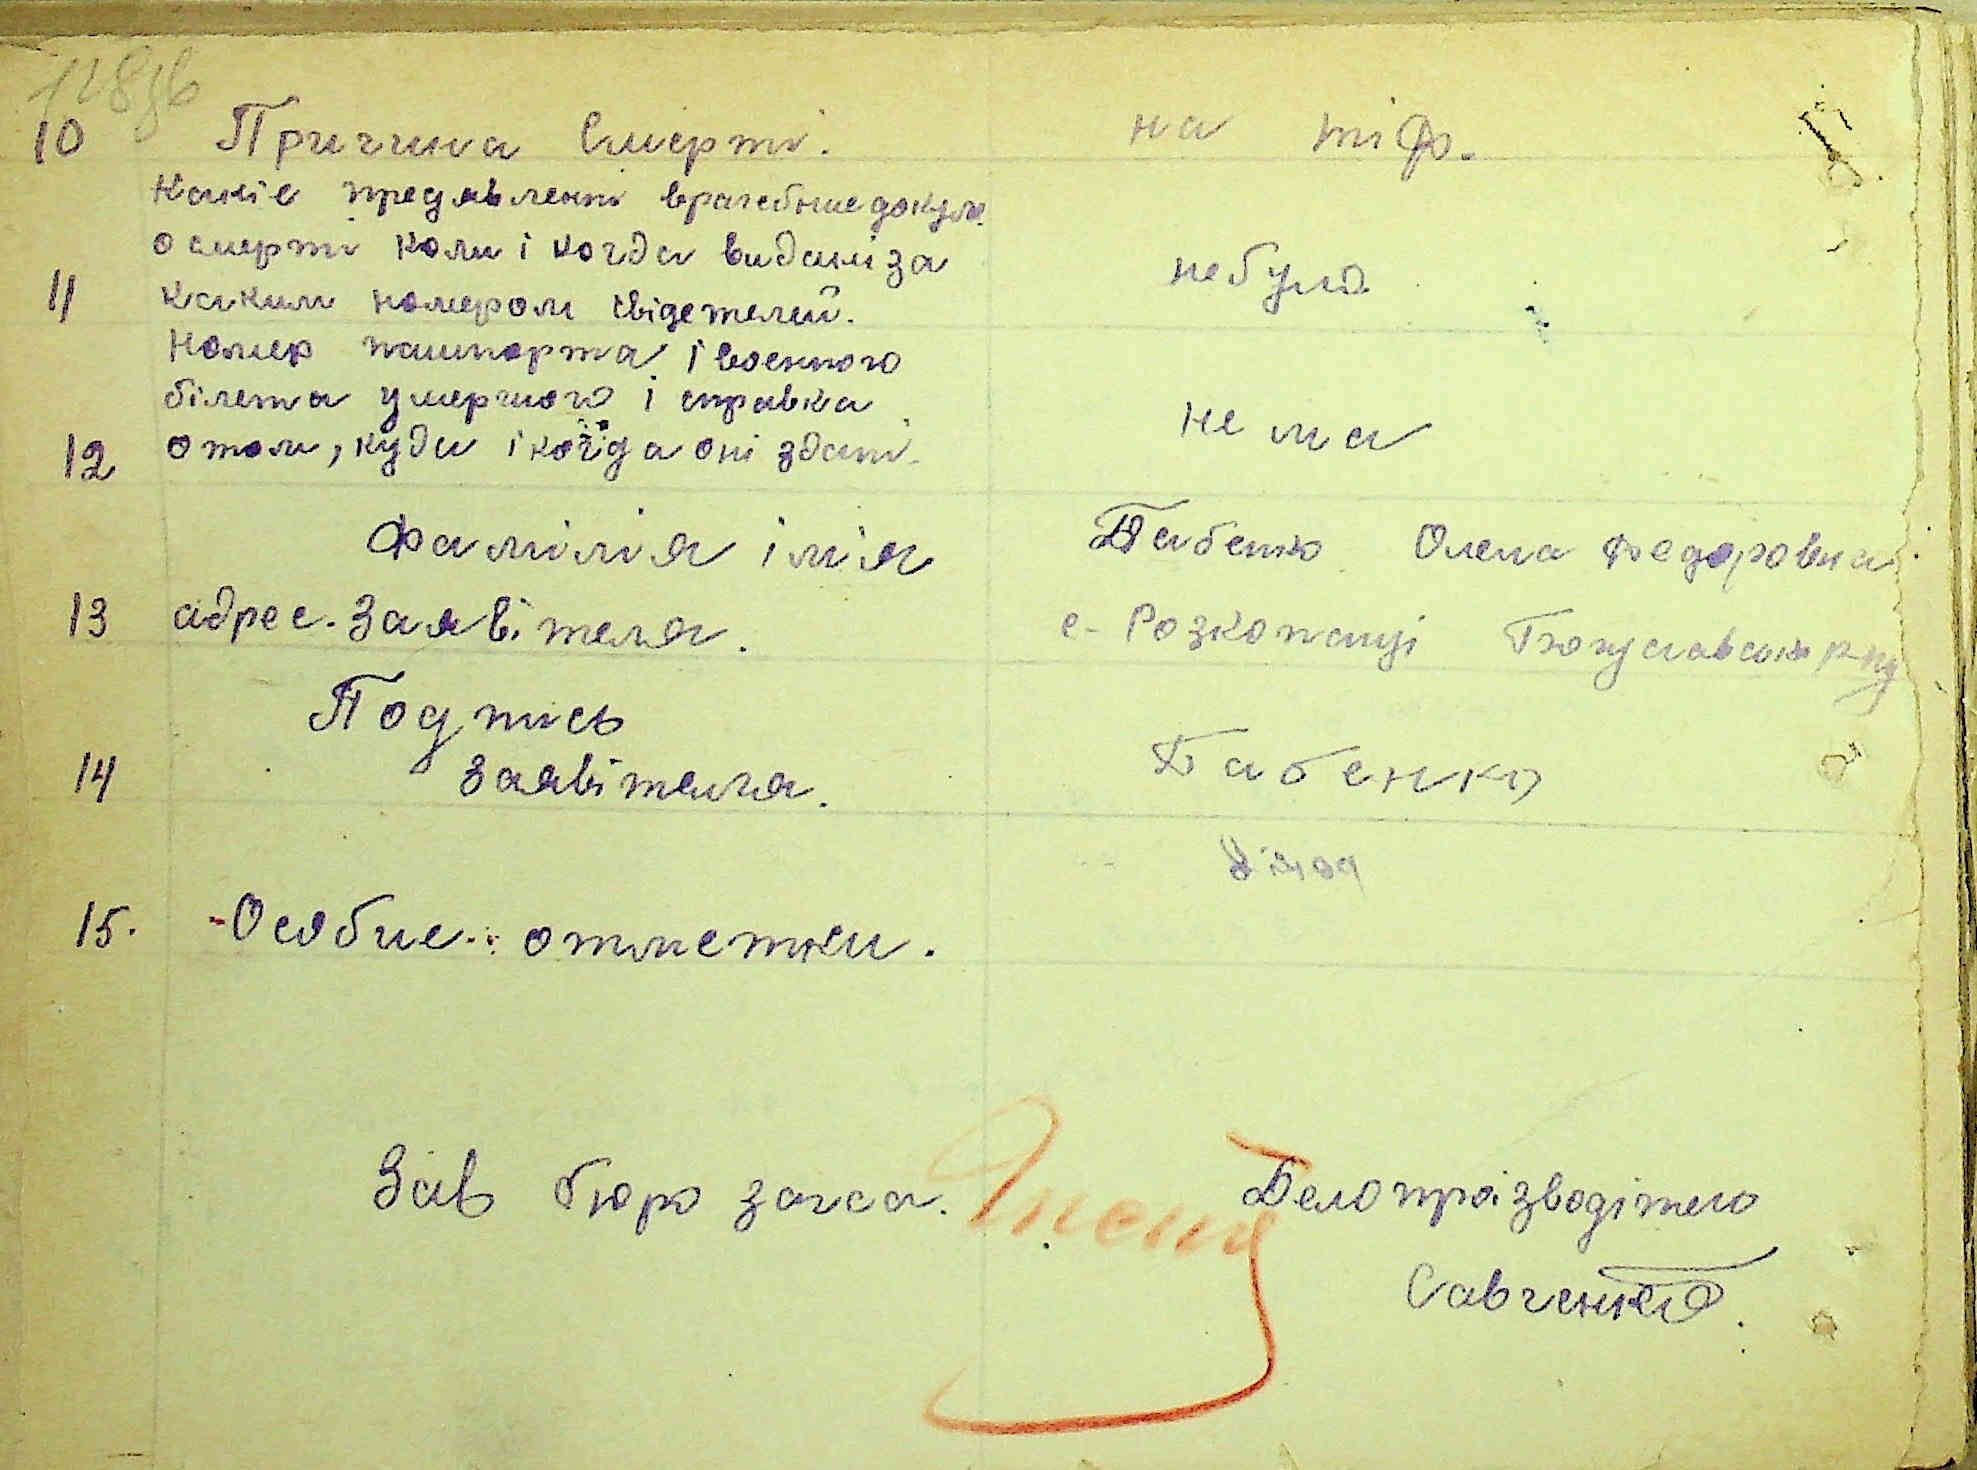 10 Причина Смерті. на тіф.
Какіе предявлені врачебние докум.
о смерті коли і когда видані за
11 каким номером свідетелей. небуло.
Номер пашпорта і военного
білета умершого і справка
12 отом, куди і когда оні здані. не ма
Фамілія імія Бабенко Олена Федоровна
13 адрес. Заявітеля. с. Розкопанці Богуславськ р-ну
Подпись
14 Заявітеля. Бабенко
15. Особие отметки.
Зав бюро загса. Делопроізводітель
Савченко.